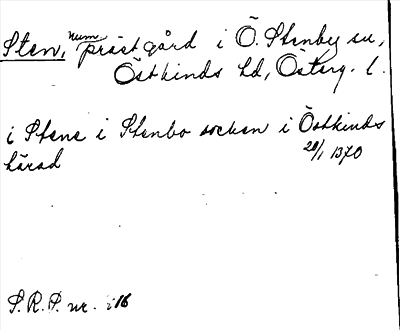 Sten, num prästgård i Ö. Stenby sn,
Östkinds hd, Österg. l.
i Stene i Stenbo socken i Östkinds
härad 28/1 1370
S.R.P. nr. 116